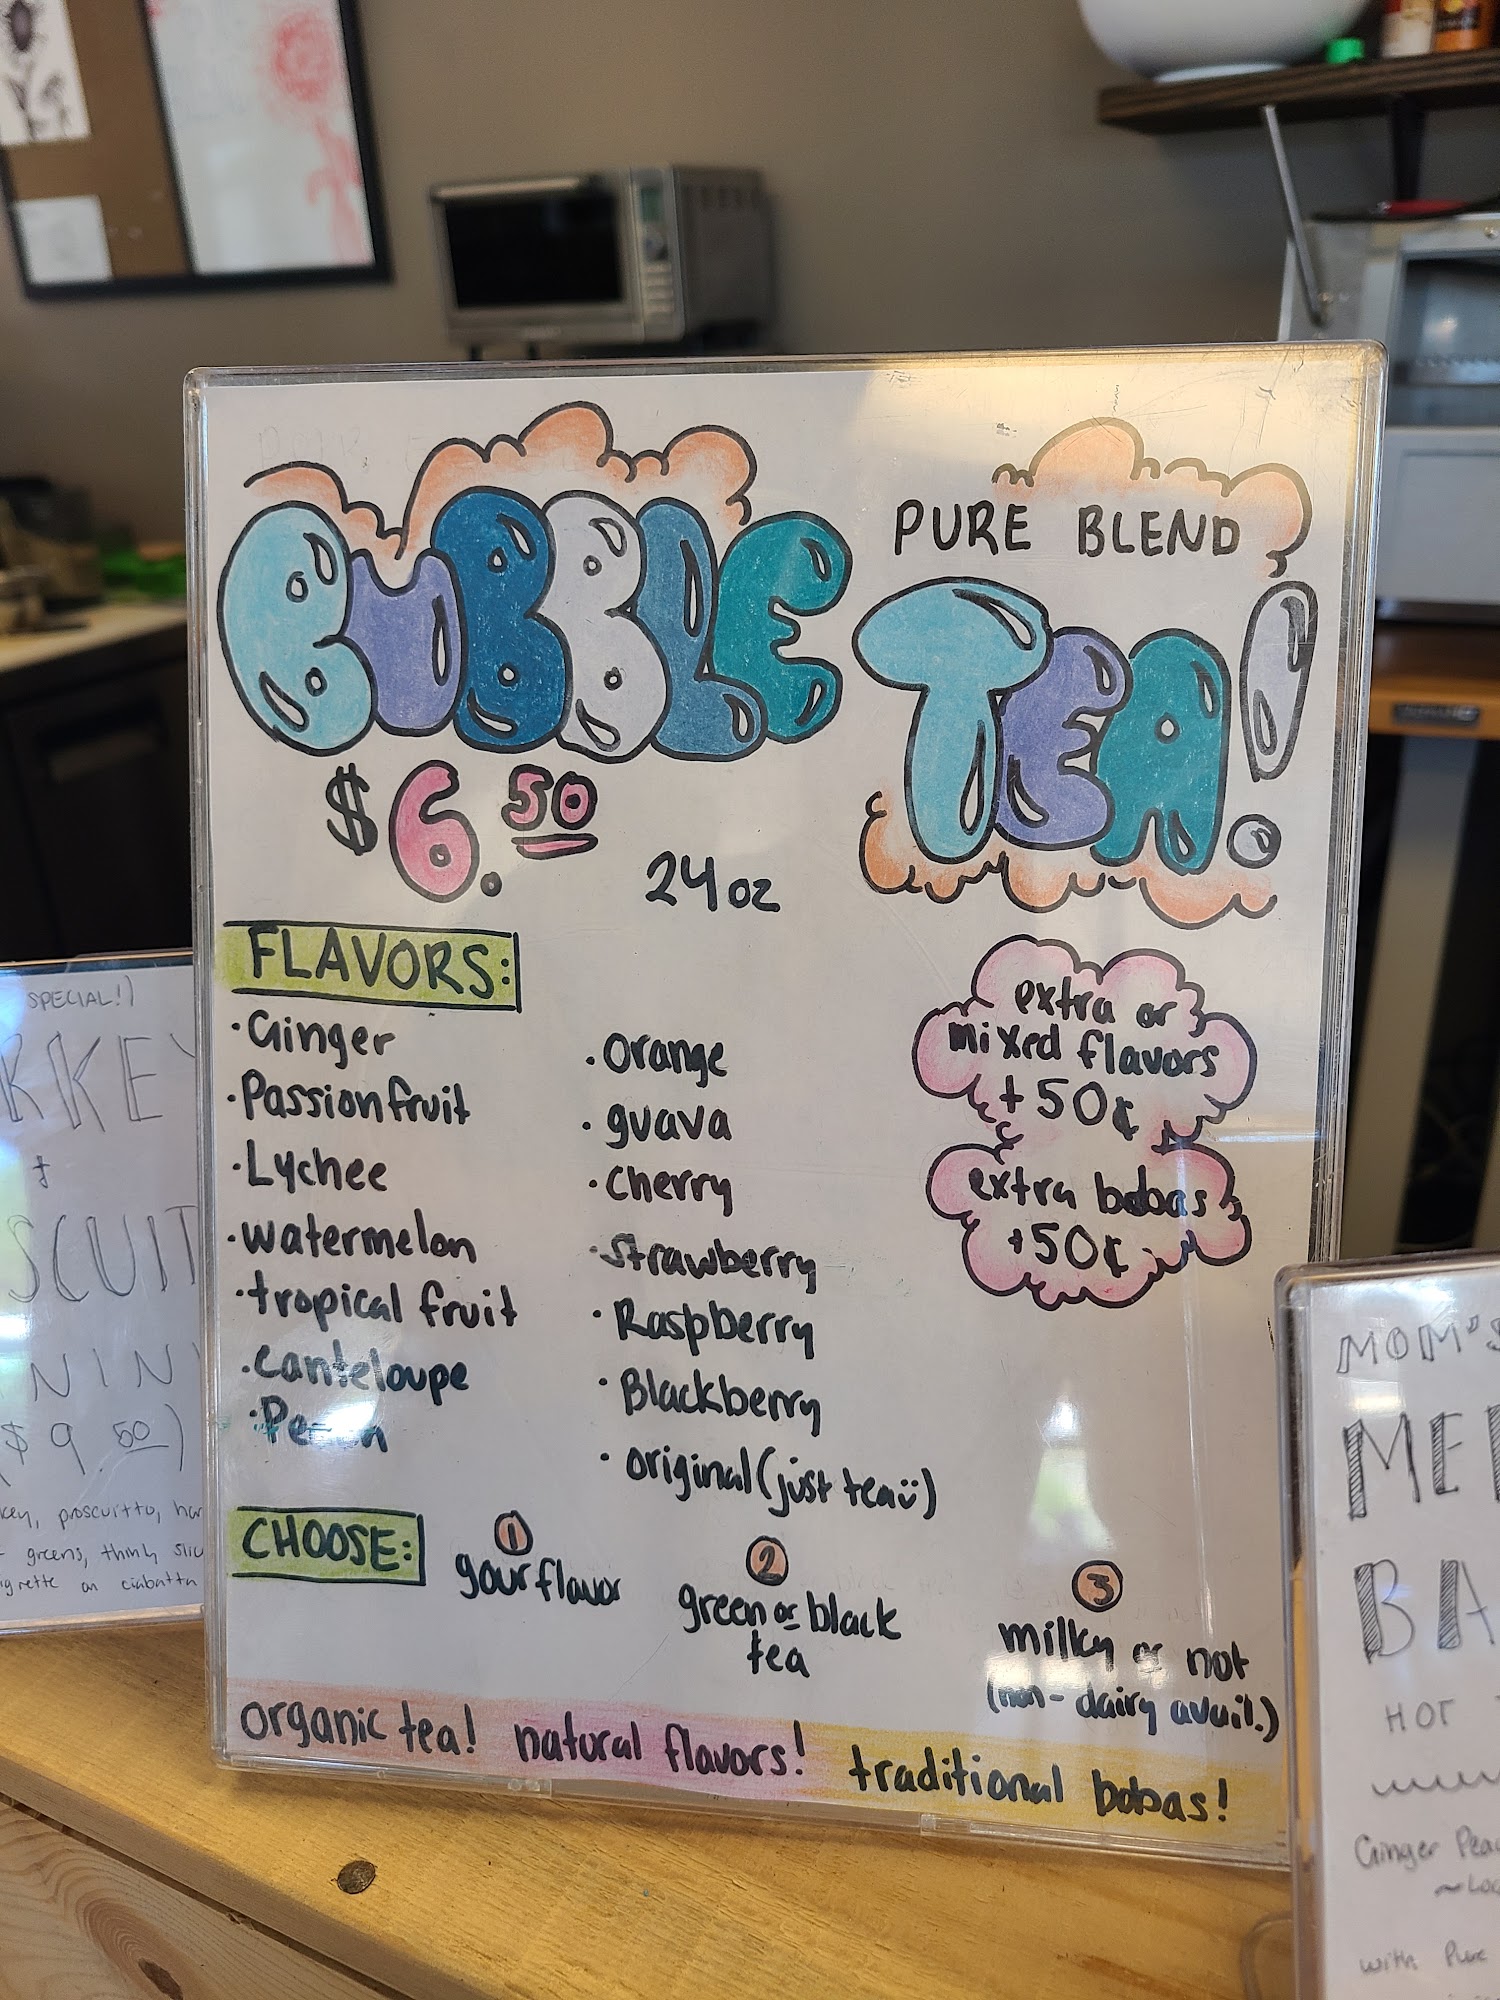 BUBBLE
PURE BLEND
TEA!
$6.50
24oz
FLAVORS:
•Ginger
•Passionfruit
•Lychee
•watermelon
•tropical fruit
•canteloupe
•orange
•guava
•cherry
•strawberry
•Raspberry
•Blackberry
•original (just tea ü)
extra or
mixed flavors
+50¢
extra bobas
+50¢
CHOOSE:
1
your flavor
2
green or black
tea
3
milky or not
(non-dairy avail.)
organic tea! natural flavors! traditional bobas!
SPECIAL!)
$9.50)
proscuitto,
greens, think
on ciabatta
MOM'S
HOT
Ginger
with Pure